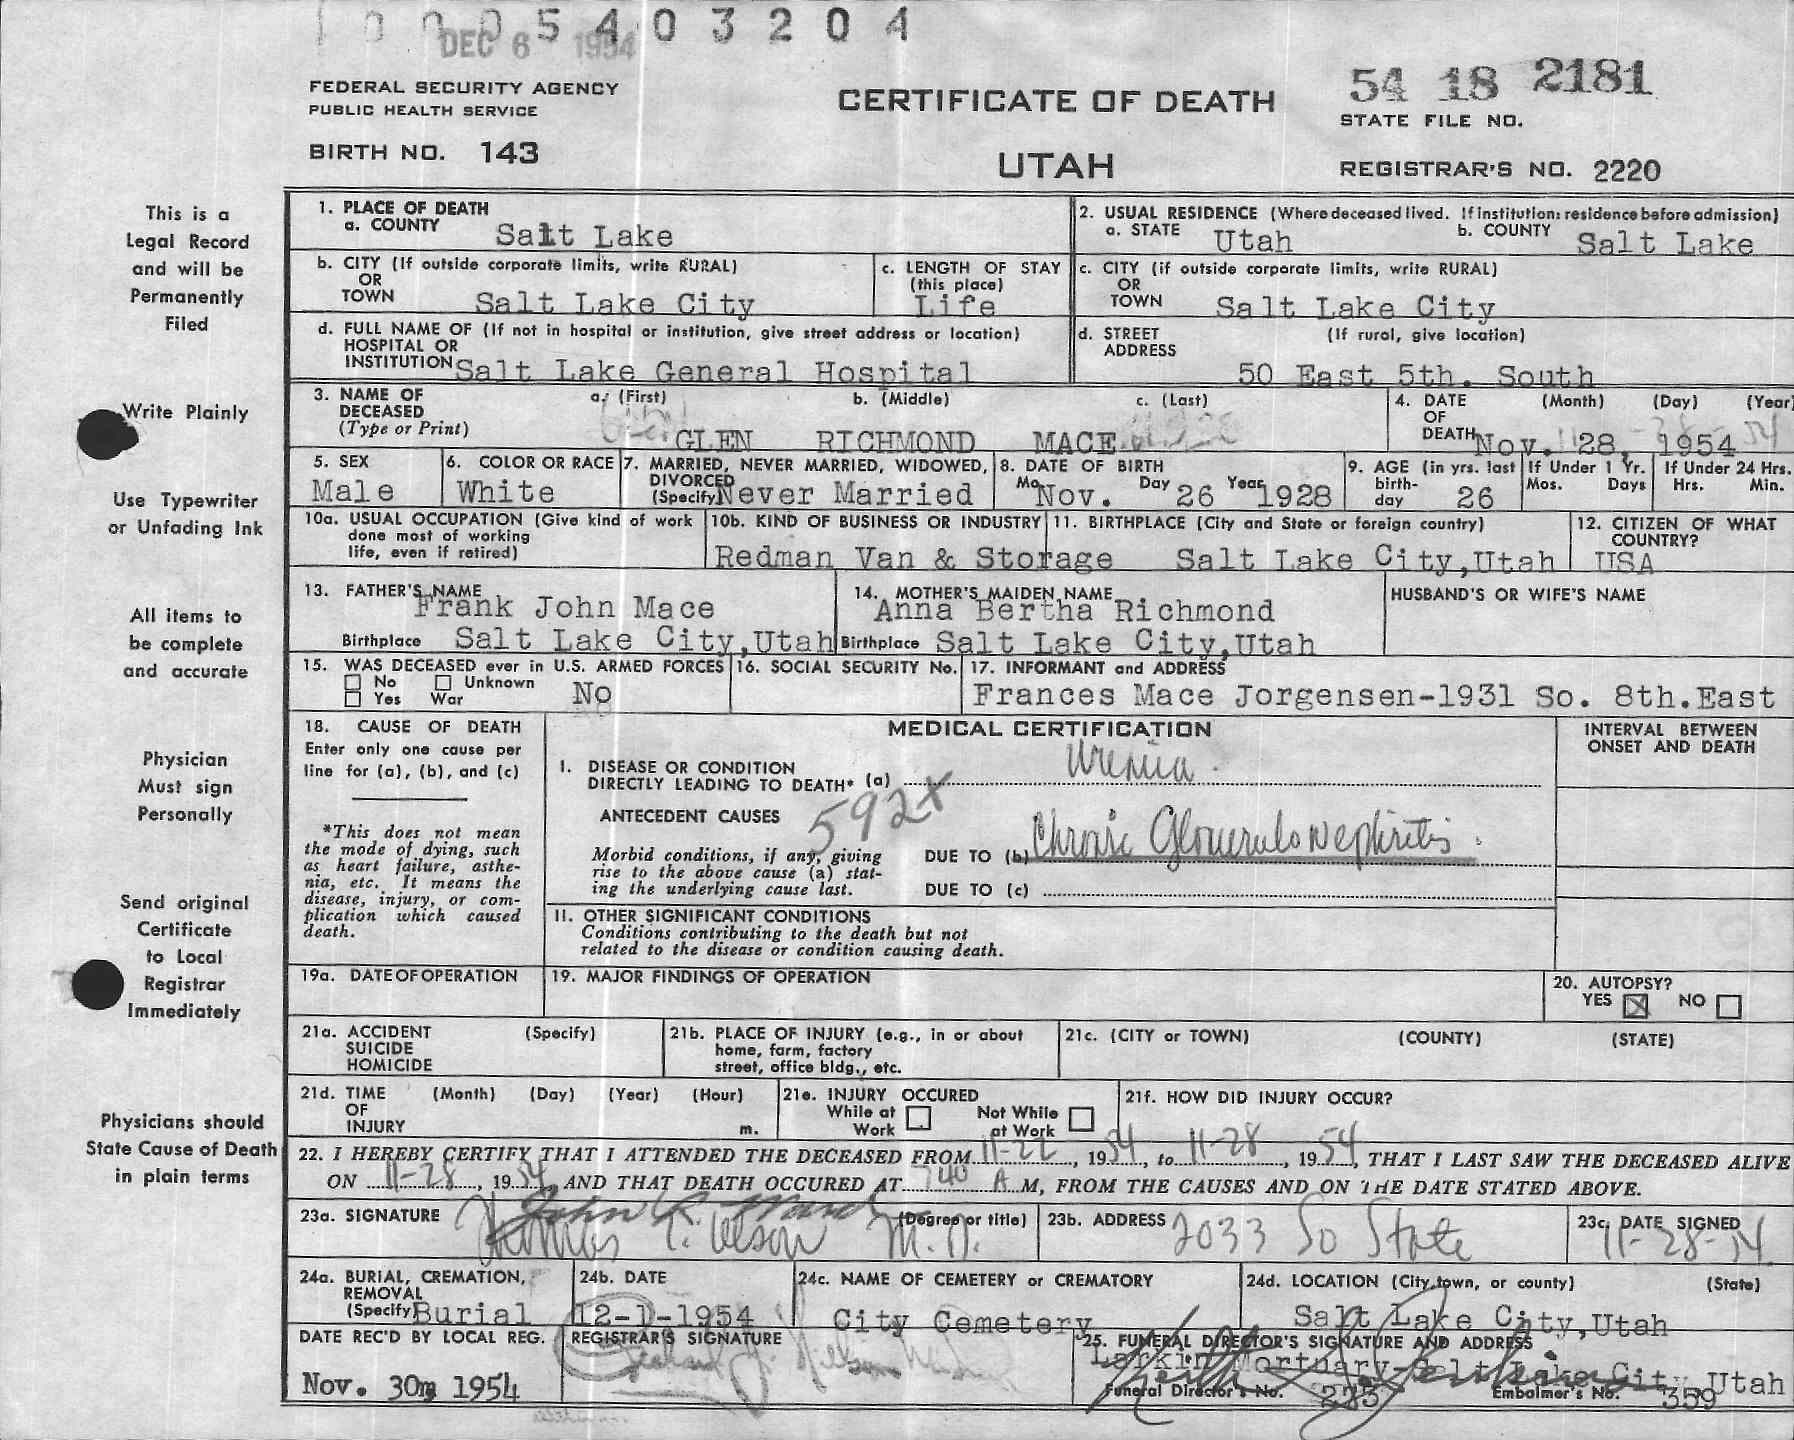 1 0 0 0 5 4 0 3 2 0 4
DEC 6 1954
FEDERAL SECURITY AGENCY
PUBLIC HEALTH SERVICE
BIRTH NO. 143
CERTIFICATE OF DEATH
UTAH
54 18 2181
STATE FILE NO.
REGISTRAR'S NO. 2220
This is a
Legal Record
and will be
Permanently
Filed
Write Plainly
Use Typewriter
or Unfading Ink
All items to
be complete
and accurate
Physician
Must sign
Personally
Send original
Certificate
to Local
Registrar
Immediately
Physicians should
State Cause of Death
in plain terms
1. PLACE OF DEATH
a. COUNTY Salt Lake
2. USUAL RESIDENCE (Where deceased lived. If institution: residence before admission)
a. STATE Utah b. COUNTY Salt Lake
b. CITY (If outside corporate limits, write RURAL)
OR
TOWN Salt Lake City
c. LENGTH OF STAY
(this place)
Life
c. CITY (if outside corporate limits, write RURAL)
OR
TOWN Salt Lake City
d. FULL NAME OF (If not in hospital or institution, give street address or location)
HOSPITAL OR
INSTITUTION Salt Lake General Hospital
d. STREET (If rural, give location)
ADDRESS
50 East 5th. South
3. NAME OF a. (First) b. (Middle) c. (Last)
DECEASED
(Type or Print)
GLEN RICHMOND MACE
4. DATE (Month) (Day) (Year)
OF
DEATH Nov. 28, 1954
5. SEX
Male
6. COLOR OR RACE
White
7. MARRIED, NEVER MARRIED, WIDOWED,
DIVORCED
(Specify) Never Married
8. DATE OF BIRTH
Mo. Nov. Day 26 Year 1928
9. AGE (in yrs. last
birth-
day 26
If Under 1 Yr.
Mos. Days
If Under 24 Hrs.
Hrs. Min.
10a. USUAL OCCUPATION (Give kind of work
done most of working
life, even if retired)
10b. KIND OF BUSINESS OR INDUSTRY
Redman Van & Storage
11. BIRTHPLACE (City and State or foreign country)
Salt Lake City,Utah
12. CITIZEN OF WHAT
COUNTRY?
USA
13. FATHER'S NAME
Frank John Mace
Birthplace Salt Lake City,Utah
14. MOTHER'S MAIDEN NAME
Anna Bertha Richmond
Birthplace Salt Lake City,Utah
HUSBAND'S OR WIFE'S NAME
15. WAS DECEASED ever in U.S. ARMED FORCES
No Unknown
Yes War No
16. SOCIAL SECURITY No.
17. INFORMANT and ADDRESS
Frances Mace Jorgensen-1931 So. 8th.East
18. CAUSE OF DEATH
Enter only one cause per
line for (a), (b), and (c)
*This does not mean
the mode of dying, such
as heart failure, asthe-
nia, etc. It means the
disease, injury, or com-
plication which caused
death.
MEDICAL CERTIFICATION
INTERVAL BETWEEN
ONSET AND DEATH
I. DISEASE OR CONDITION
DIRECTLY LEADING TO DEATH* (a) Uremia
592x
ANTECEDENT CAUSES
Morbid conditions, if any, giving
rise to the above cause (a) stat-
ing the underlying cause last.
DUE TO (b) Chronic Glomerulo Nephritis
DUE TO (c)
II. OTHER SIGNIFICANT CONDITIONS
Conditions contributing to the death but not
related to the disease or condition causing death.
19a. DATE OF OPERATION
19. MAJOR FINDINGS OF OPERATION
20. AUTOPSY?
YES NO
21a. ACCIDENT (Specify)
SUICIDE
HOMICIDE
21b. PLACE OF INJURY (e.g., in or about
home, farm, factory
street, office bldg., etc.
21c. (CITY or TOWN) (COUNTY) (STATE)
21d. TIME (Month) (Day) (Year) (Hour)
OF
INJURY m.
21e. INJURY OCCURED
While at Not While
Work at Work
21f. HOW DID INJURY OCCUR?
22. I HEREBY CERTIFY THAT I ATTENDED THE DECEASED FROM 11-22, 1954, to 11-28, 1954, THAT I LAST SAW THE DECEASED ALIVE
ON 11-28, 1954, AND THAT DEATH OCCURED AT 740 A M, FROM THE CAUSES AND ON THE DATE STATED ABOVE.
23a. SIGNATURE John (Degree or title)
Thomas M.D.
23b. ADDRESS 2033 So State
23c. DATE SIGNED
11-28-54
24a. BURIAL, CREMATION,
REMOVAL
(Specify) Burial
24b. DATE
12-1-1954
24c. NAME OF CEMETERY or CREMATORY
City Cemetery
24d. LOCATION (City, town, or county) (State)
Salt Lake City,Utah
DATE REC'D BY LOCAL REG.
Nov. 30, 1954
REGISTRAR'S SIGNATURE
25. FUNERAL DIRECTOR'S SIGNATURE AND ADDRESS
Larkin Mortuary-Salt Lake City, Utah
Funeral Director's No. 225 Embalmer's No. 359